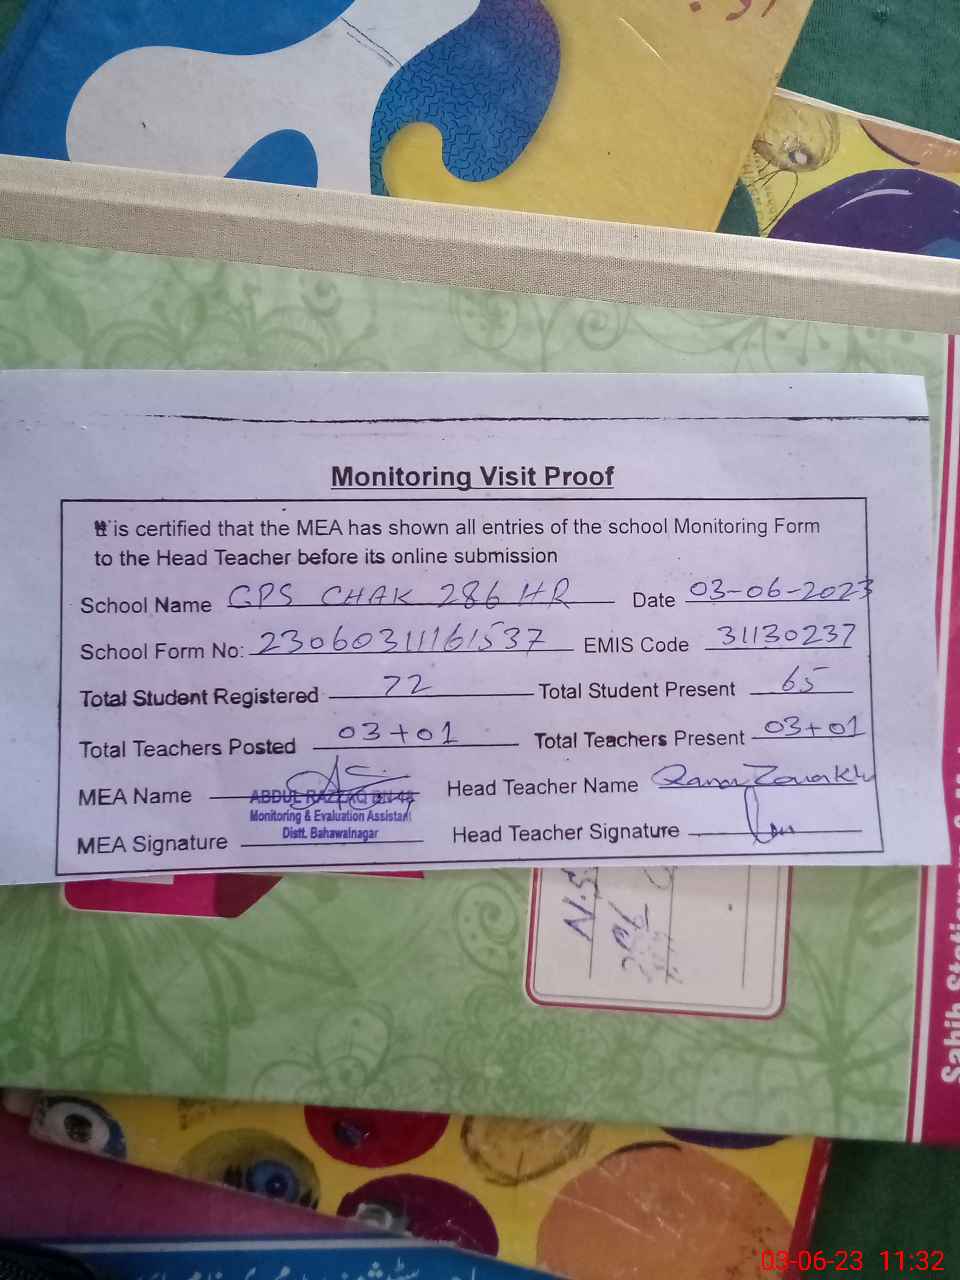 Monitoring Visit Proof
It is certified that the MEA has shown all entries of the school Monitoring Form
to the Head Teacher before its online submission
School Name GPS CHAK 286 HR Date 03-06-2023
School Form No: 23060311161537 EMIS Code 31130237
Total Student Registered 72 Total Student Present 65
Total Teachers Posted 03+01 Total Teachers Present 03+01
MEA Name ABDUL RAZZAQ Head Teacher Name
Monitoring & Evaluation Assistant
Distt. Bahawalnagar
MEA Signature Head Teacher Signature
Sahib Stationers
03-06-23 11:32